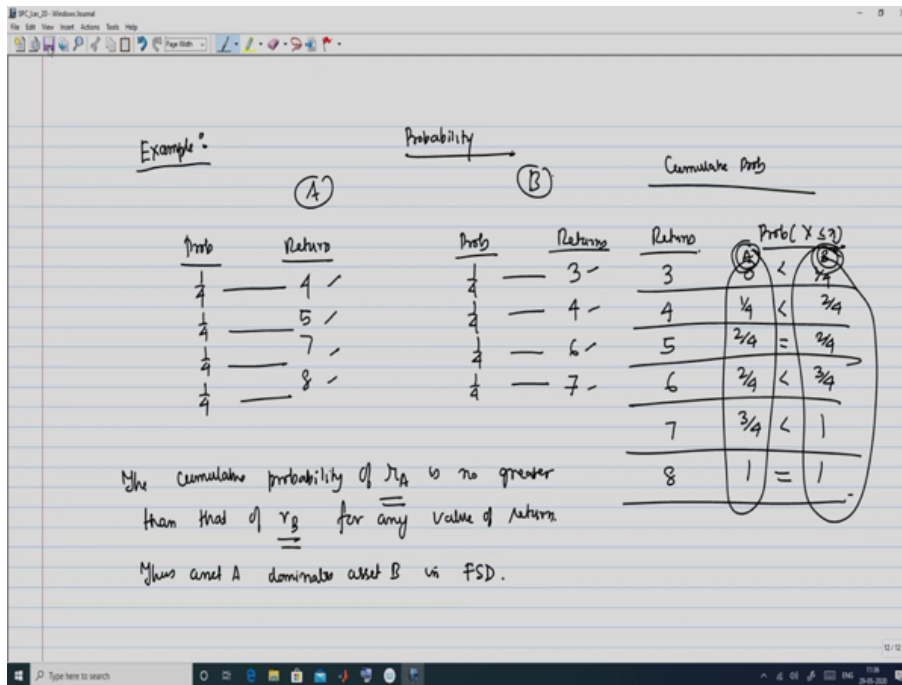 SPC_Lec_20 - Windows Journal
File Edit View Insert Actions Tools Help
Page Width
Example:
Probability
A
B
Cumulate Prob
Prob Return
Prob Returns
Returns Prob(X ≤ x)
A B
1/4 — 4
1/4 — 3
3 0 < 1/4
1/4 — 5
1/4 — 4
4 1/4 < 2/4
1/4 — 7
1/4 — 6
5 2/4 = 2/4
1/4 — 8
1/4 — 7
6 2/4 < 3/4
7 3/4 < 1
8 1 = 1
The cumulative probability of r_A is no greater
than that of r_B for any value of return.
Thus asset A dominates asset B in FSD.
12 / 12
Type here to search
ENG
11:36
29-05-2020